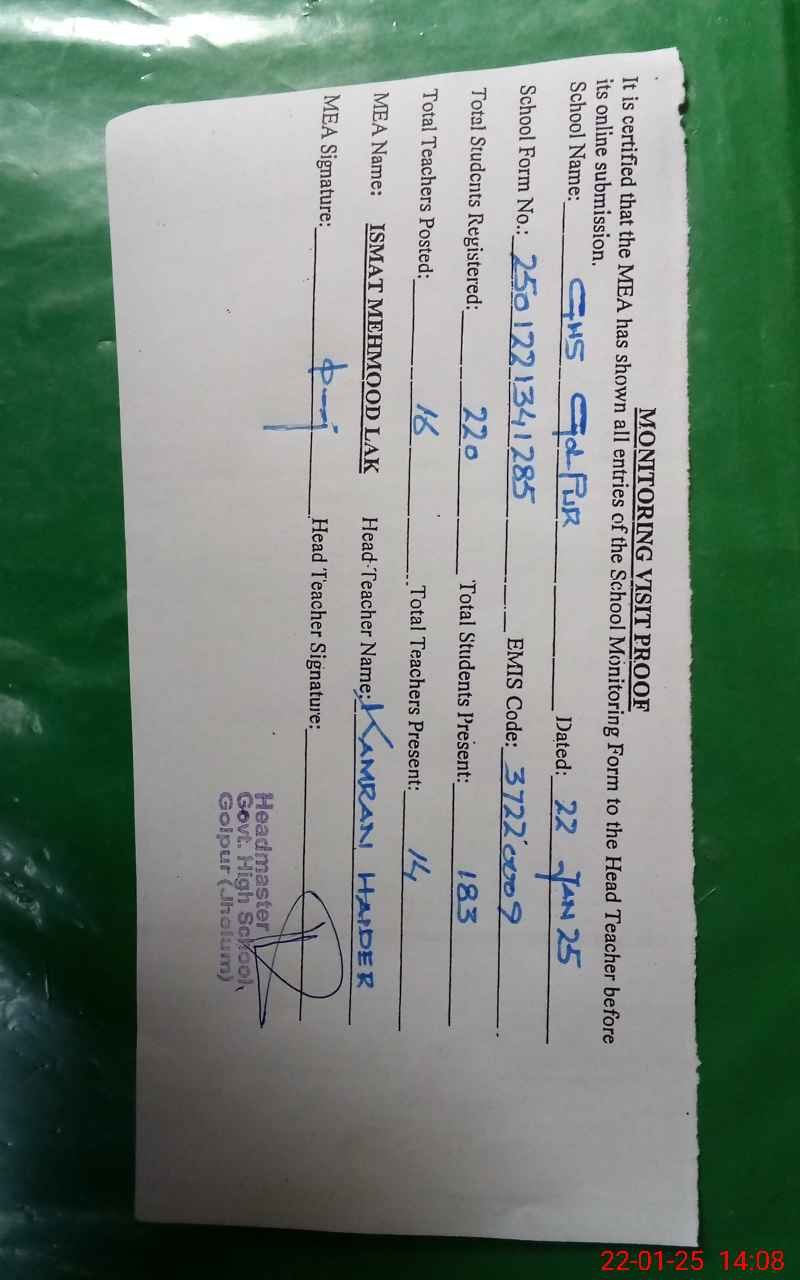 MONITORING VISIT PROOF
It is certified that the MEA has shown all entries of the School Monitoring Form to the Head Teacher before
its online submission.
School Name: GHS Golpur Dated: 22 JAN 25
School Form No.: 2501221341285 EMIS Code: 37220009
Total Students Registered: 220 Total Students Present: 183
Total Teachers Posted: 16 Total Teachers Present: 14
MEA Name: ISMAT MEHMOOD LAK Head Teacher Name: KAMRAN HAIDER
MEA Signature: Head Teacher Signature:
Headmaster
Govt. High School,
Golpur (Jhelum)
22-01-25 14:08